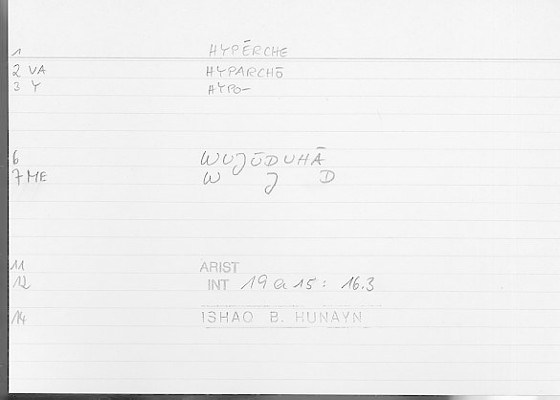 1 HYPĒRCHE
2 VA HYPARCHŌ
3 Y HYPO-
6 WUJŪDUHĀ
7 ME W J D
11 ARIST
12 INT 19 a 15 : 16.3
14 ISHAQ B. HUNAYN